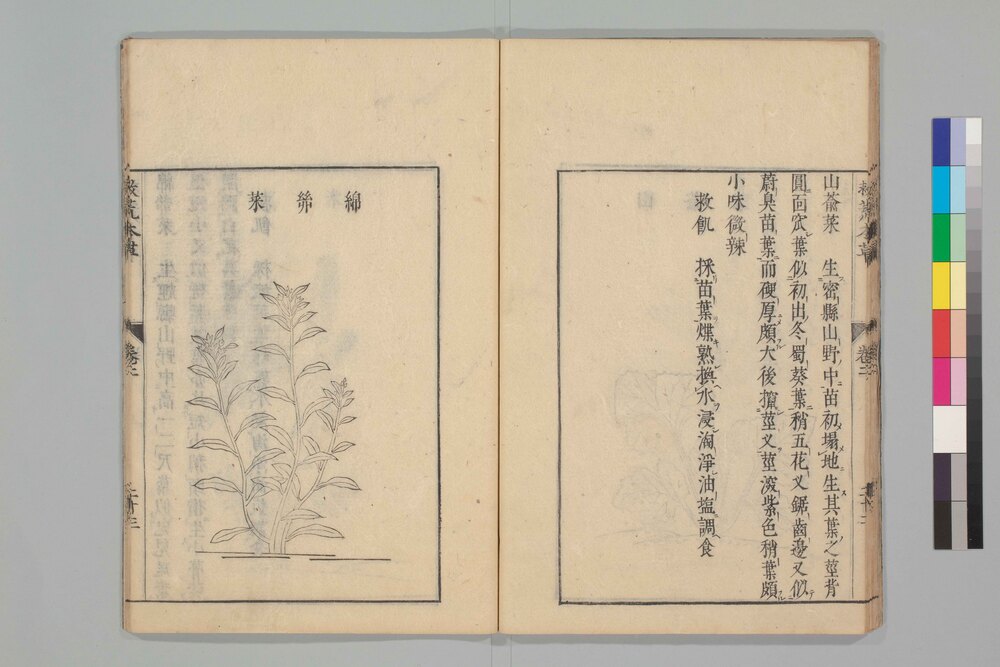 山萮菜　生密縣山野中苗初塌地生其葉之莖背
圓面窊葉似初出冬蜀葵葉稍五花叉鋸齒邊又似
蔚臭苗葉而硬厚頗大後攛莖叉莖深紫色稍葉頗
小味微辣
救飢　採苗葉煠熟換水浸淘淨油塩調食
救荒本草
卷之二
二十二
綿絲菜
救荒本草
卷之二
二十三